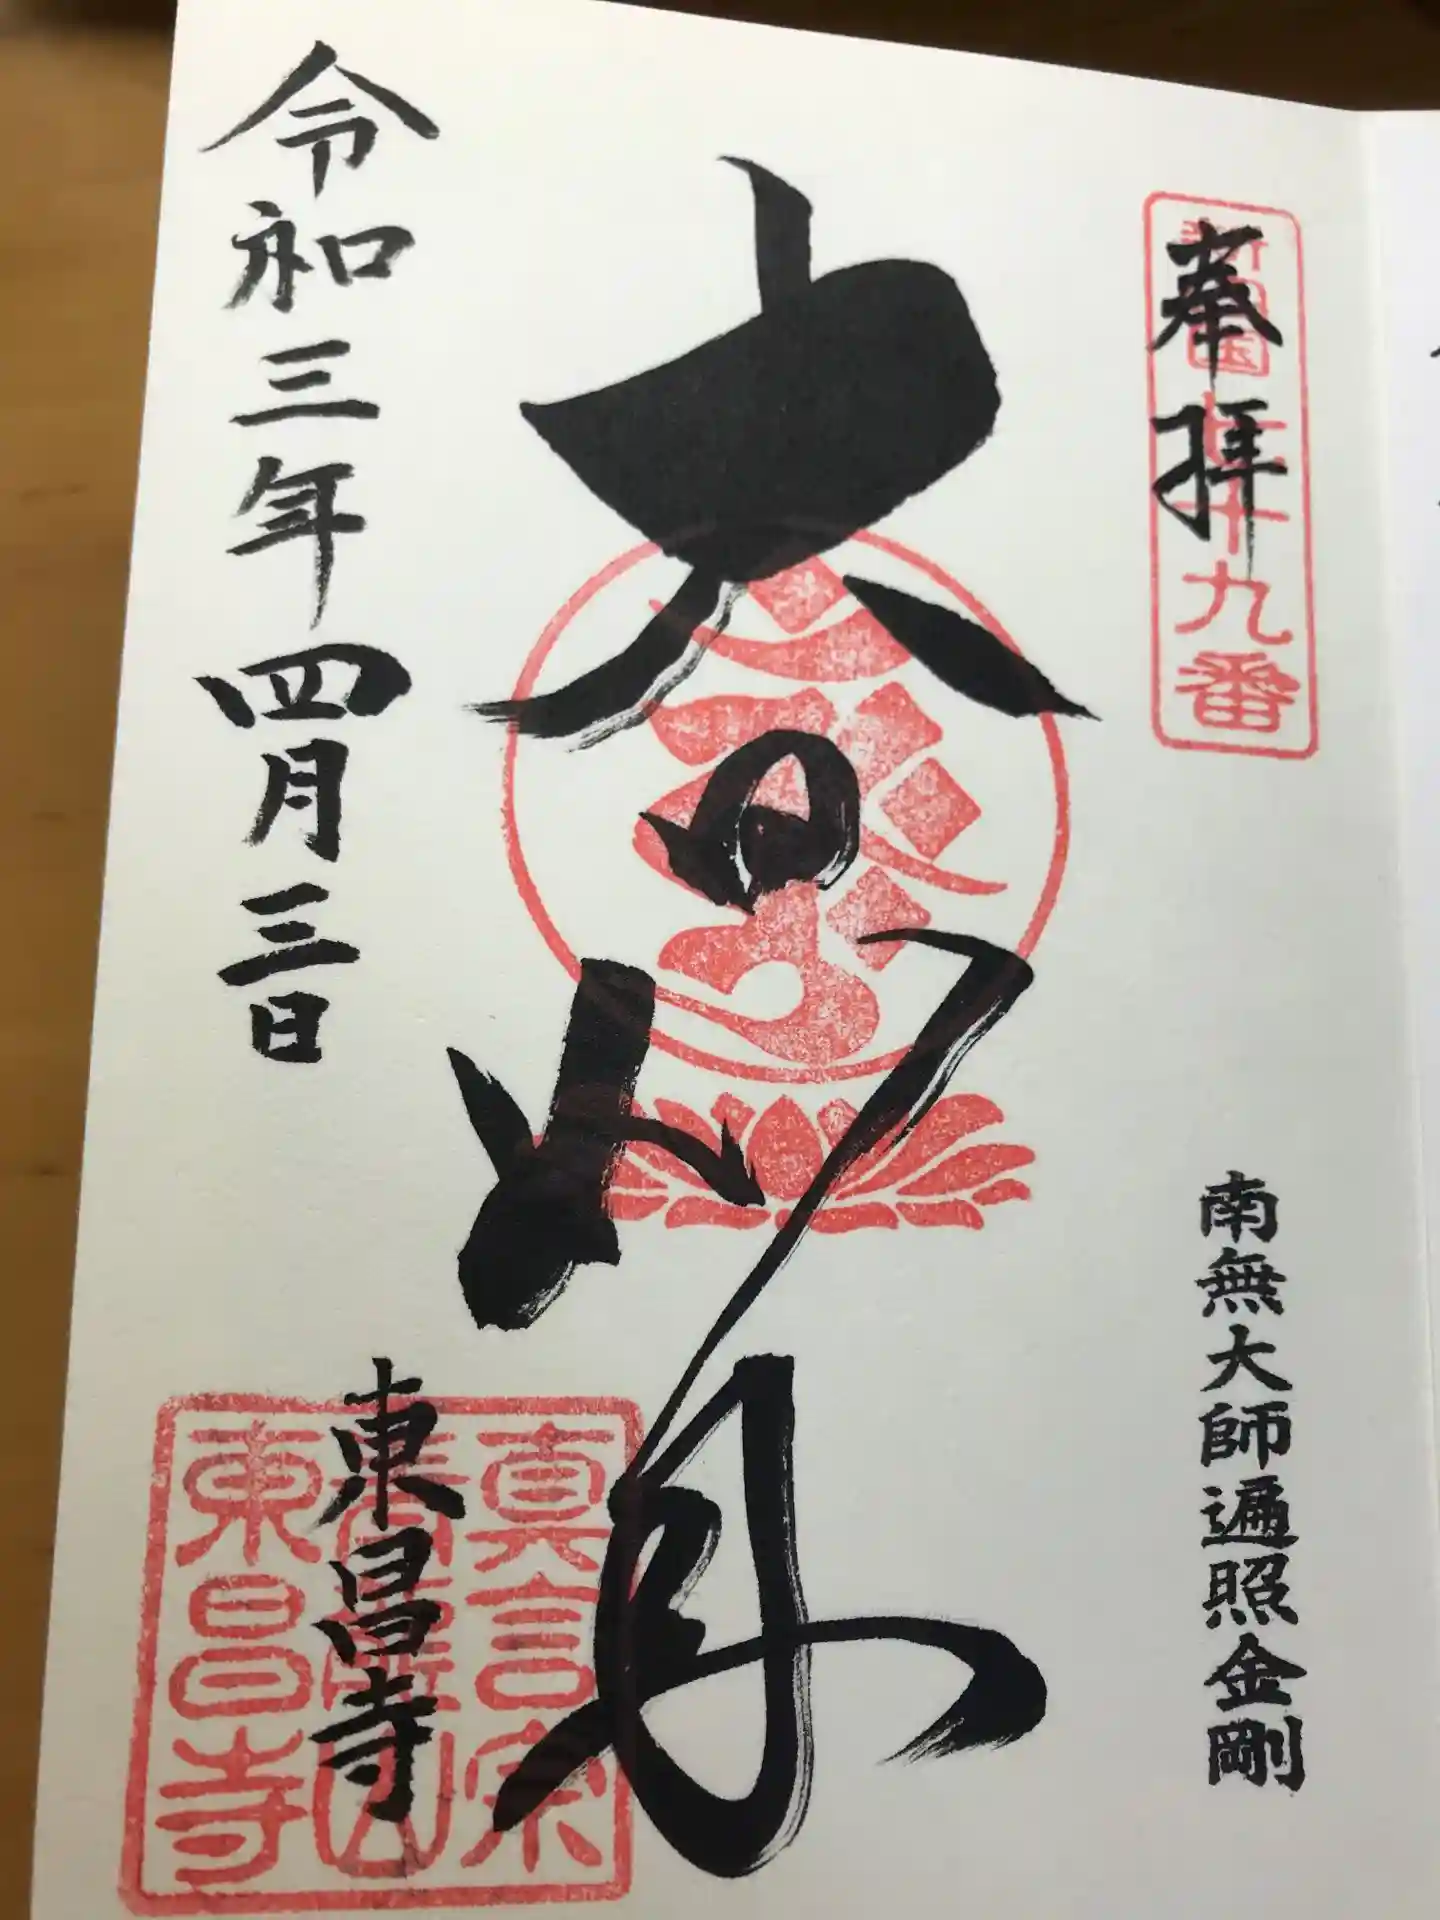 奉拝
新四国七十九番
南無大師遍照金剛
大日如来
令和三年四月三日
東昌寺
真言宗
青龍山
東昌寺